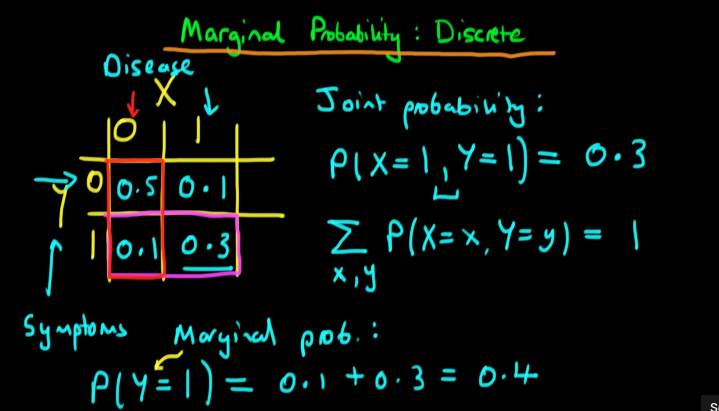 Marginal Probability: Discrete
Disease
X
0 1
Y 0 0.5 0.1
1 0.1 0.3
Symptoms
Joint probability:
P(X=1, Y=1) = 0.3
∑ P(X=x, Y=y) = 1
x,y
Marginal prob.:
P(Y=1) = 0.1 + 0.3 = 0.4
S